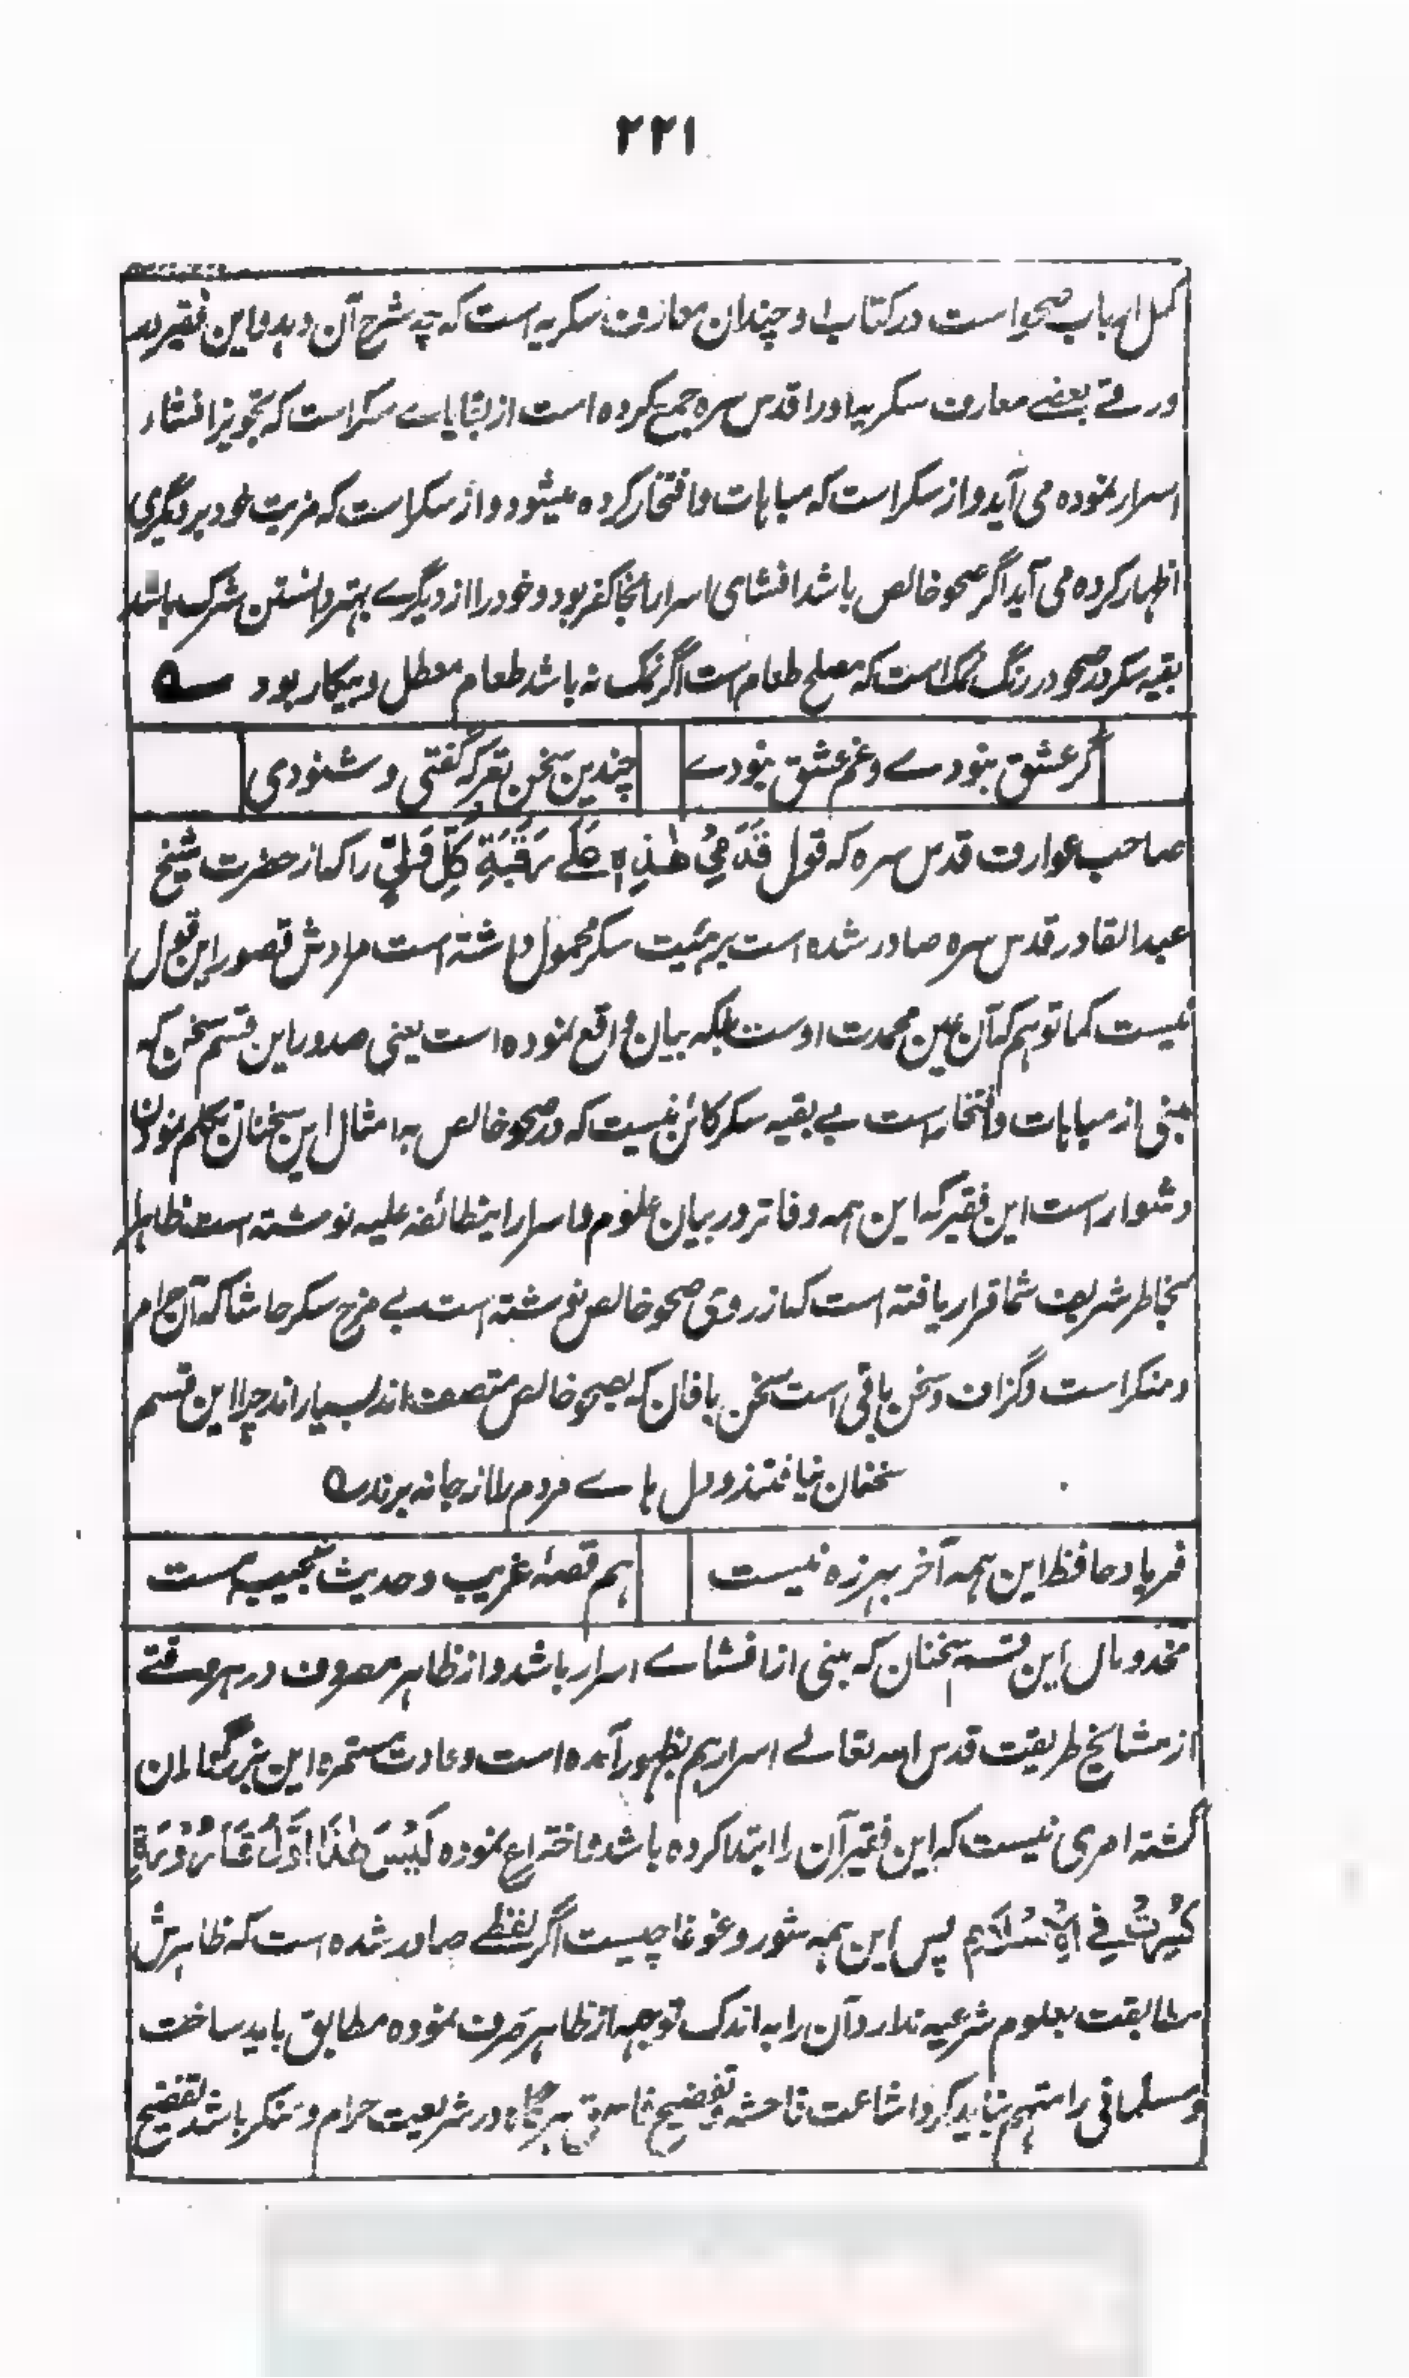 ۲۲۱
کمل ارباب صحو است در کتاب او چندان معارف سکریه است که چه شرح آن دهد و این فقیر در
ورقے بعضے معارف سکریه او را قدس سره جمع کرده است از بقایاے سکر است که تجویز افشاء
اسرار نموده می آید و از سکر است که مباهات و افتخار کرده میشود و از سکر است که مزیت خود بر دیگری
اظهار کرده می آید اگر صحو خالص باشد افشای اسرار آنجا کفر بود و خود را از دیگرے بهتر دانستن شرک باشد
بقیه سکر در صحو در رنگ نمک است که مصلح طعام است اگر نمک نه باشد طعام معطل و بیکار بود
گر عشق نبودے و غم عشق نبودے چندین سخن نغز که گفتی و شنودی
صاحب عوارف قدس سره که قول قَدَمِیْ هٰذِهٖ عَلٰے رَقَبَةِ کُلِّ وَلِیٍّ را که از حضرت شیخ
عبدالقادر قدس سره صادر شده است بر بقیت سکر محمول داشته است مرادش قصور این قول
نیست کما توهم که آن عین محمدت اوست بلکه بیان واقع نموده است یعنی صدور این قسم سخن که
مبنی از مباهات و افتخار است بے بقیه سکر کائن نیست که در صحو خالص به امثال این سخنان تکلم نمودن
دشوار است این فقیر که این همه دفاتر در بیان علوم و اسرار اینطائفه علیه نوشته است ظاهرا
بخاطر شریف شما قرار یافته است که از روی صحو خالص نوشته است بے مزج سکر حاشا که آن حرام
و منکر است و گزاف و سخن باقی است سخن بافان که بصحو خالص متصف اند بسیار اند چرا این قسم
سخنان نیافتند و دل هاے مردم را از جا نه بردند
فریاد حافظ این همه آخر بهرزه نیست هم قصهٔ غریب و حدیث عجیب هست
مخدوما این قسم سخنان که مبنی از افشاے اسرار باشد و از ظاهر مصروف در هر وقتے
از مشایخ طریقت قدس الله تعالے اسرارهم بظهور آمده است و عادت مستمره این بزرگواران
گشته امری نیست که این فقیر آن را ابتدا کرده باشد و اختراع نموده لَیْسَ هٰذَا اَوَّلُ قَارُوْرَةٍ
کُسِرَتْ فِی الْاِسْلَامِ پس این همه شور و غوغا چیست اگر لفظے صادر شده است که ظاهرش
مطابقت بعلوم شرعیه ندارد آن را به اندک توجه از ظاهر صرف نموده مطابق باید ساخت
و مسلمانی را متهم نباید کرد اشاعت فاحشه و تفضیح فاسق هرگاه در شریعت حرام و منکر باشد تفضیح